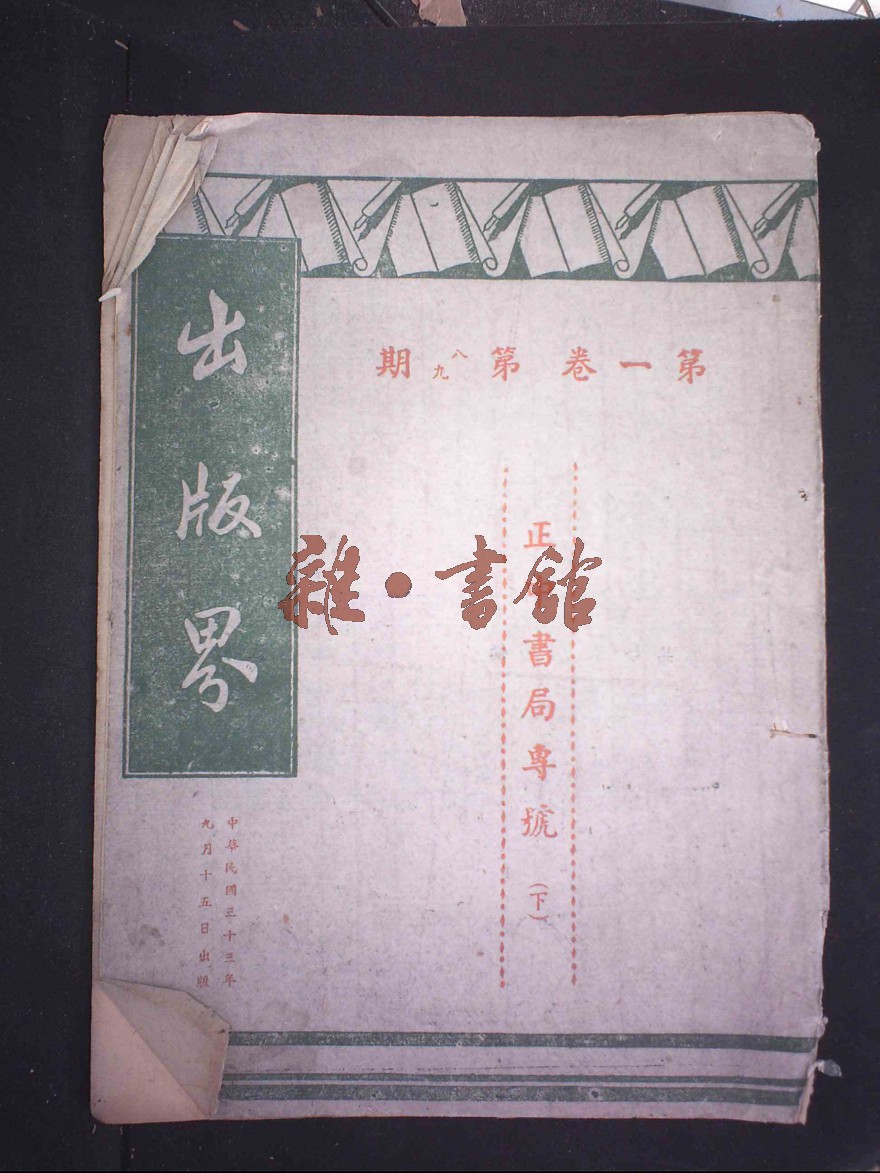 出版界
第一卷第八九期
正中書局專號（下）
中華民國三十三年
九月十五日出版
雜·書館